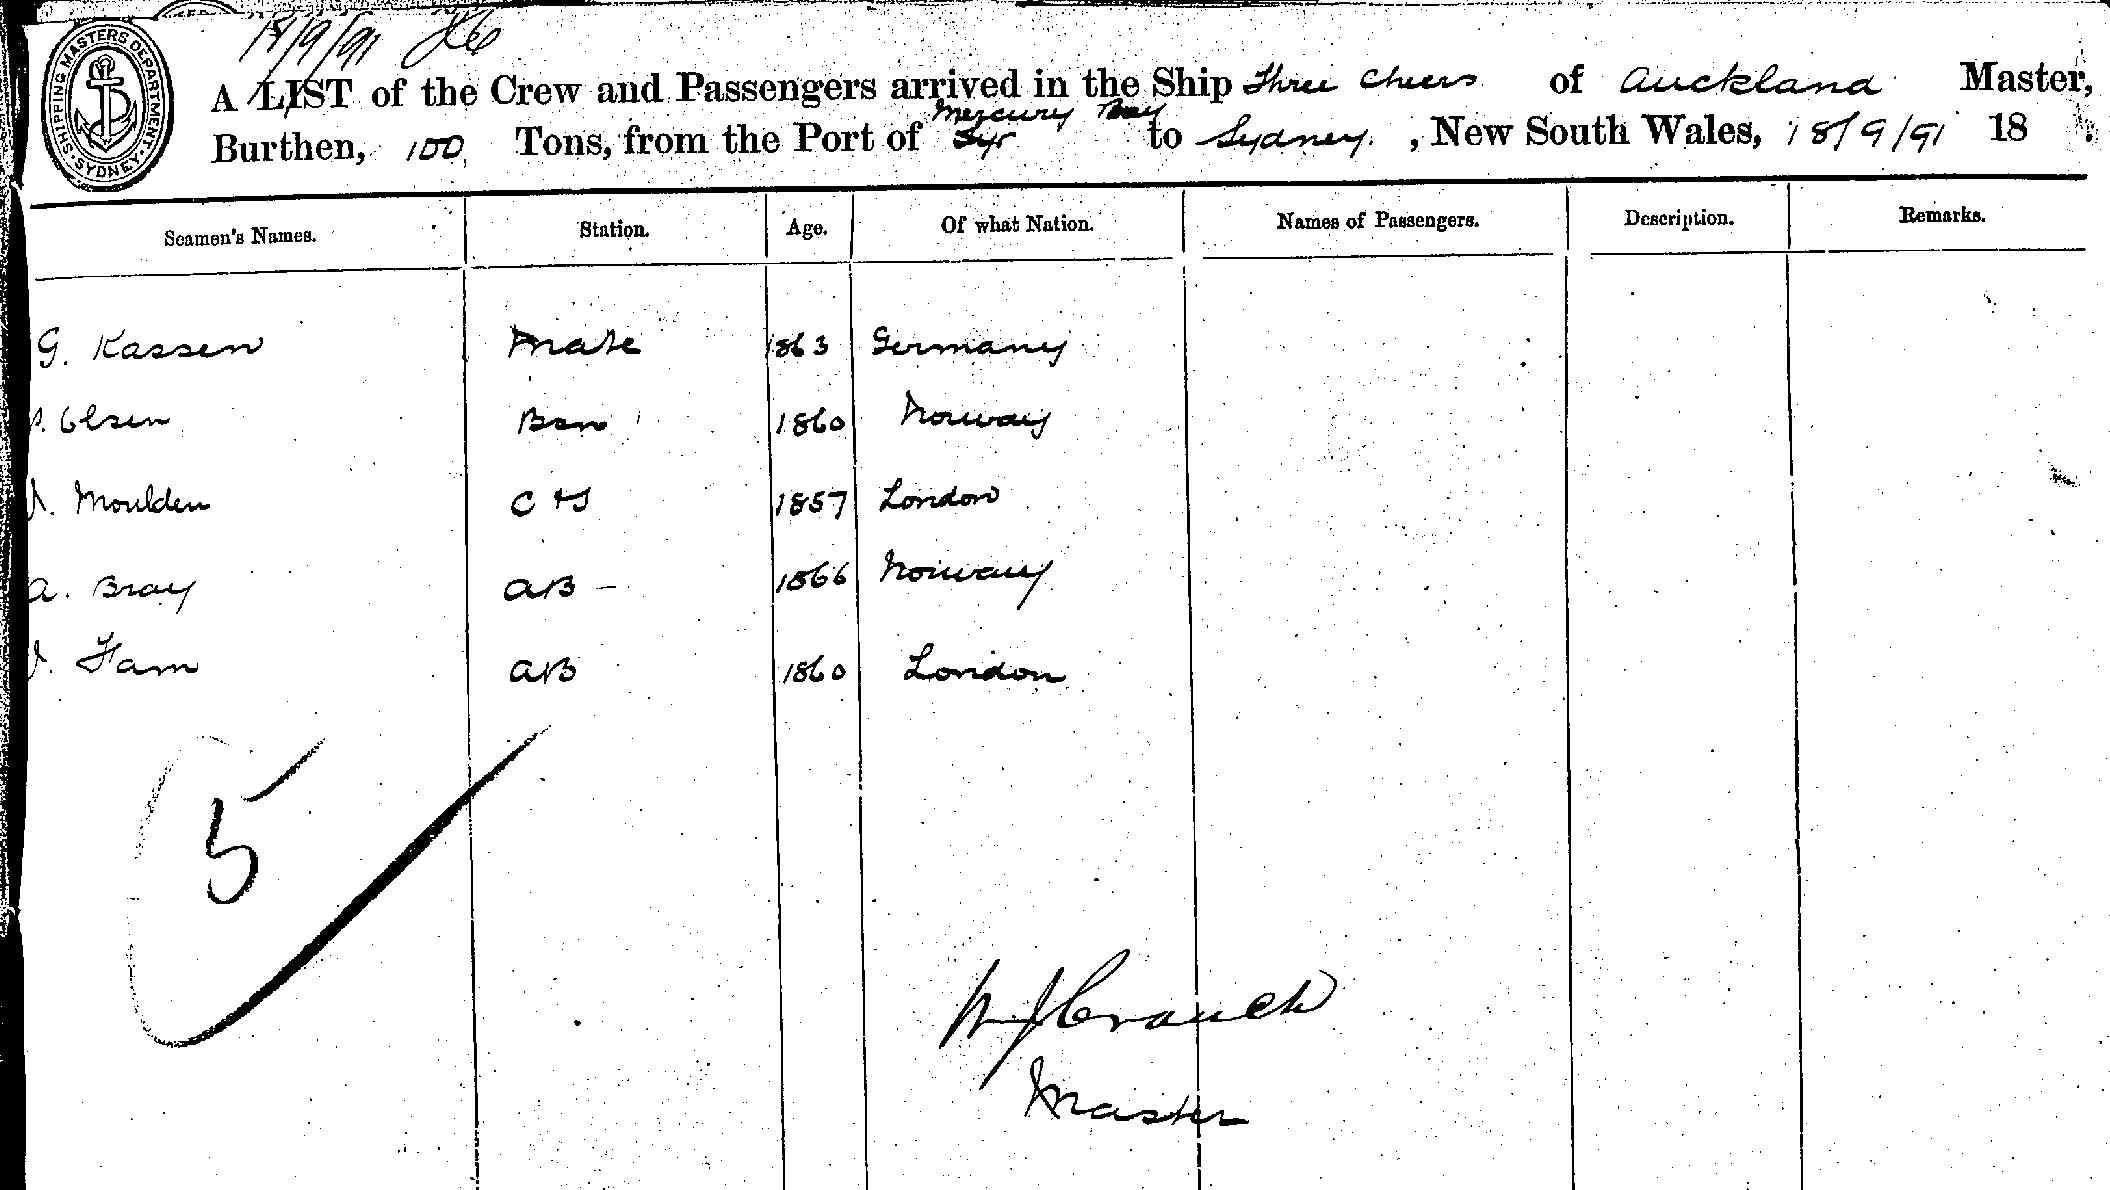 18/9/91
SHIPPING MASTERS DEPARTMENT. SYDNEY.
A LIST of the Crew and Passengers arrived in the Ship Three Cheers of Auckland Master,
Mercury Bay
Burthen, 100 Tons, from the Port of Syr to Sydney. , New South Wales, 18/9/91 18 .
Seamen's Names. Station. Age. Of what Nation. Names of Passengers. Description. Remarks.
G. Kassen Mate 1863 Germany
Olsen Bsn 1860 Norway
J. Moulden C & S 1857 London
A. Bray AB - 1866 Norway
J. Fam AB 1860 London
5
W J Crouch
Master